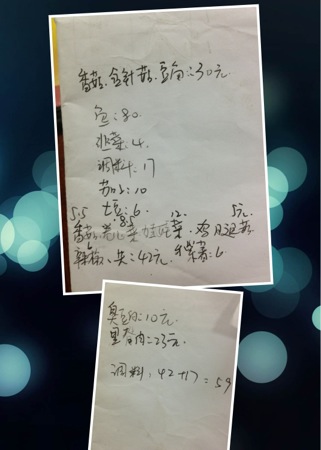 香菇、金针菇、豆角:30元.
鱼:80.
韭菜:4.
调料:17
苏叶:10
土豆:6.
5.5 8.5 12. 5元.
香菇. 花菜 娃娃菜.
6
辣椒、共:42元. 紫薯:6
臭豆:10元.
里脊肉:23元.
调料:42+17=59